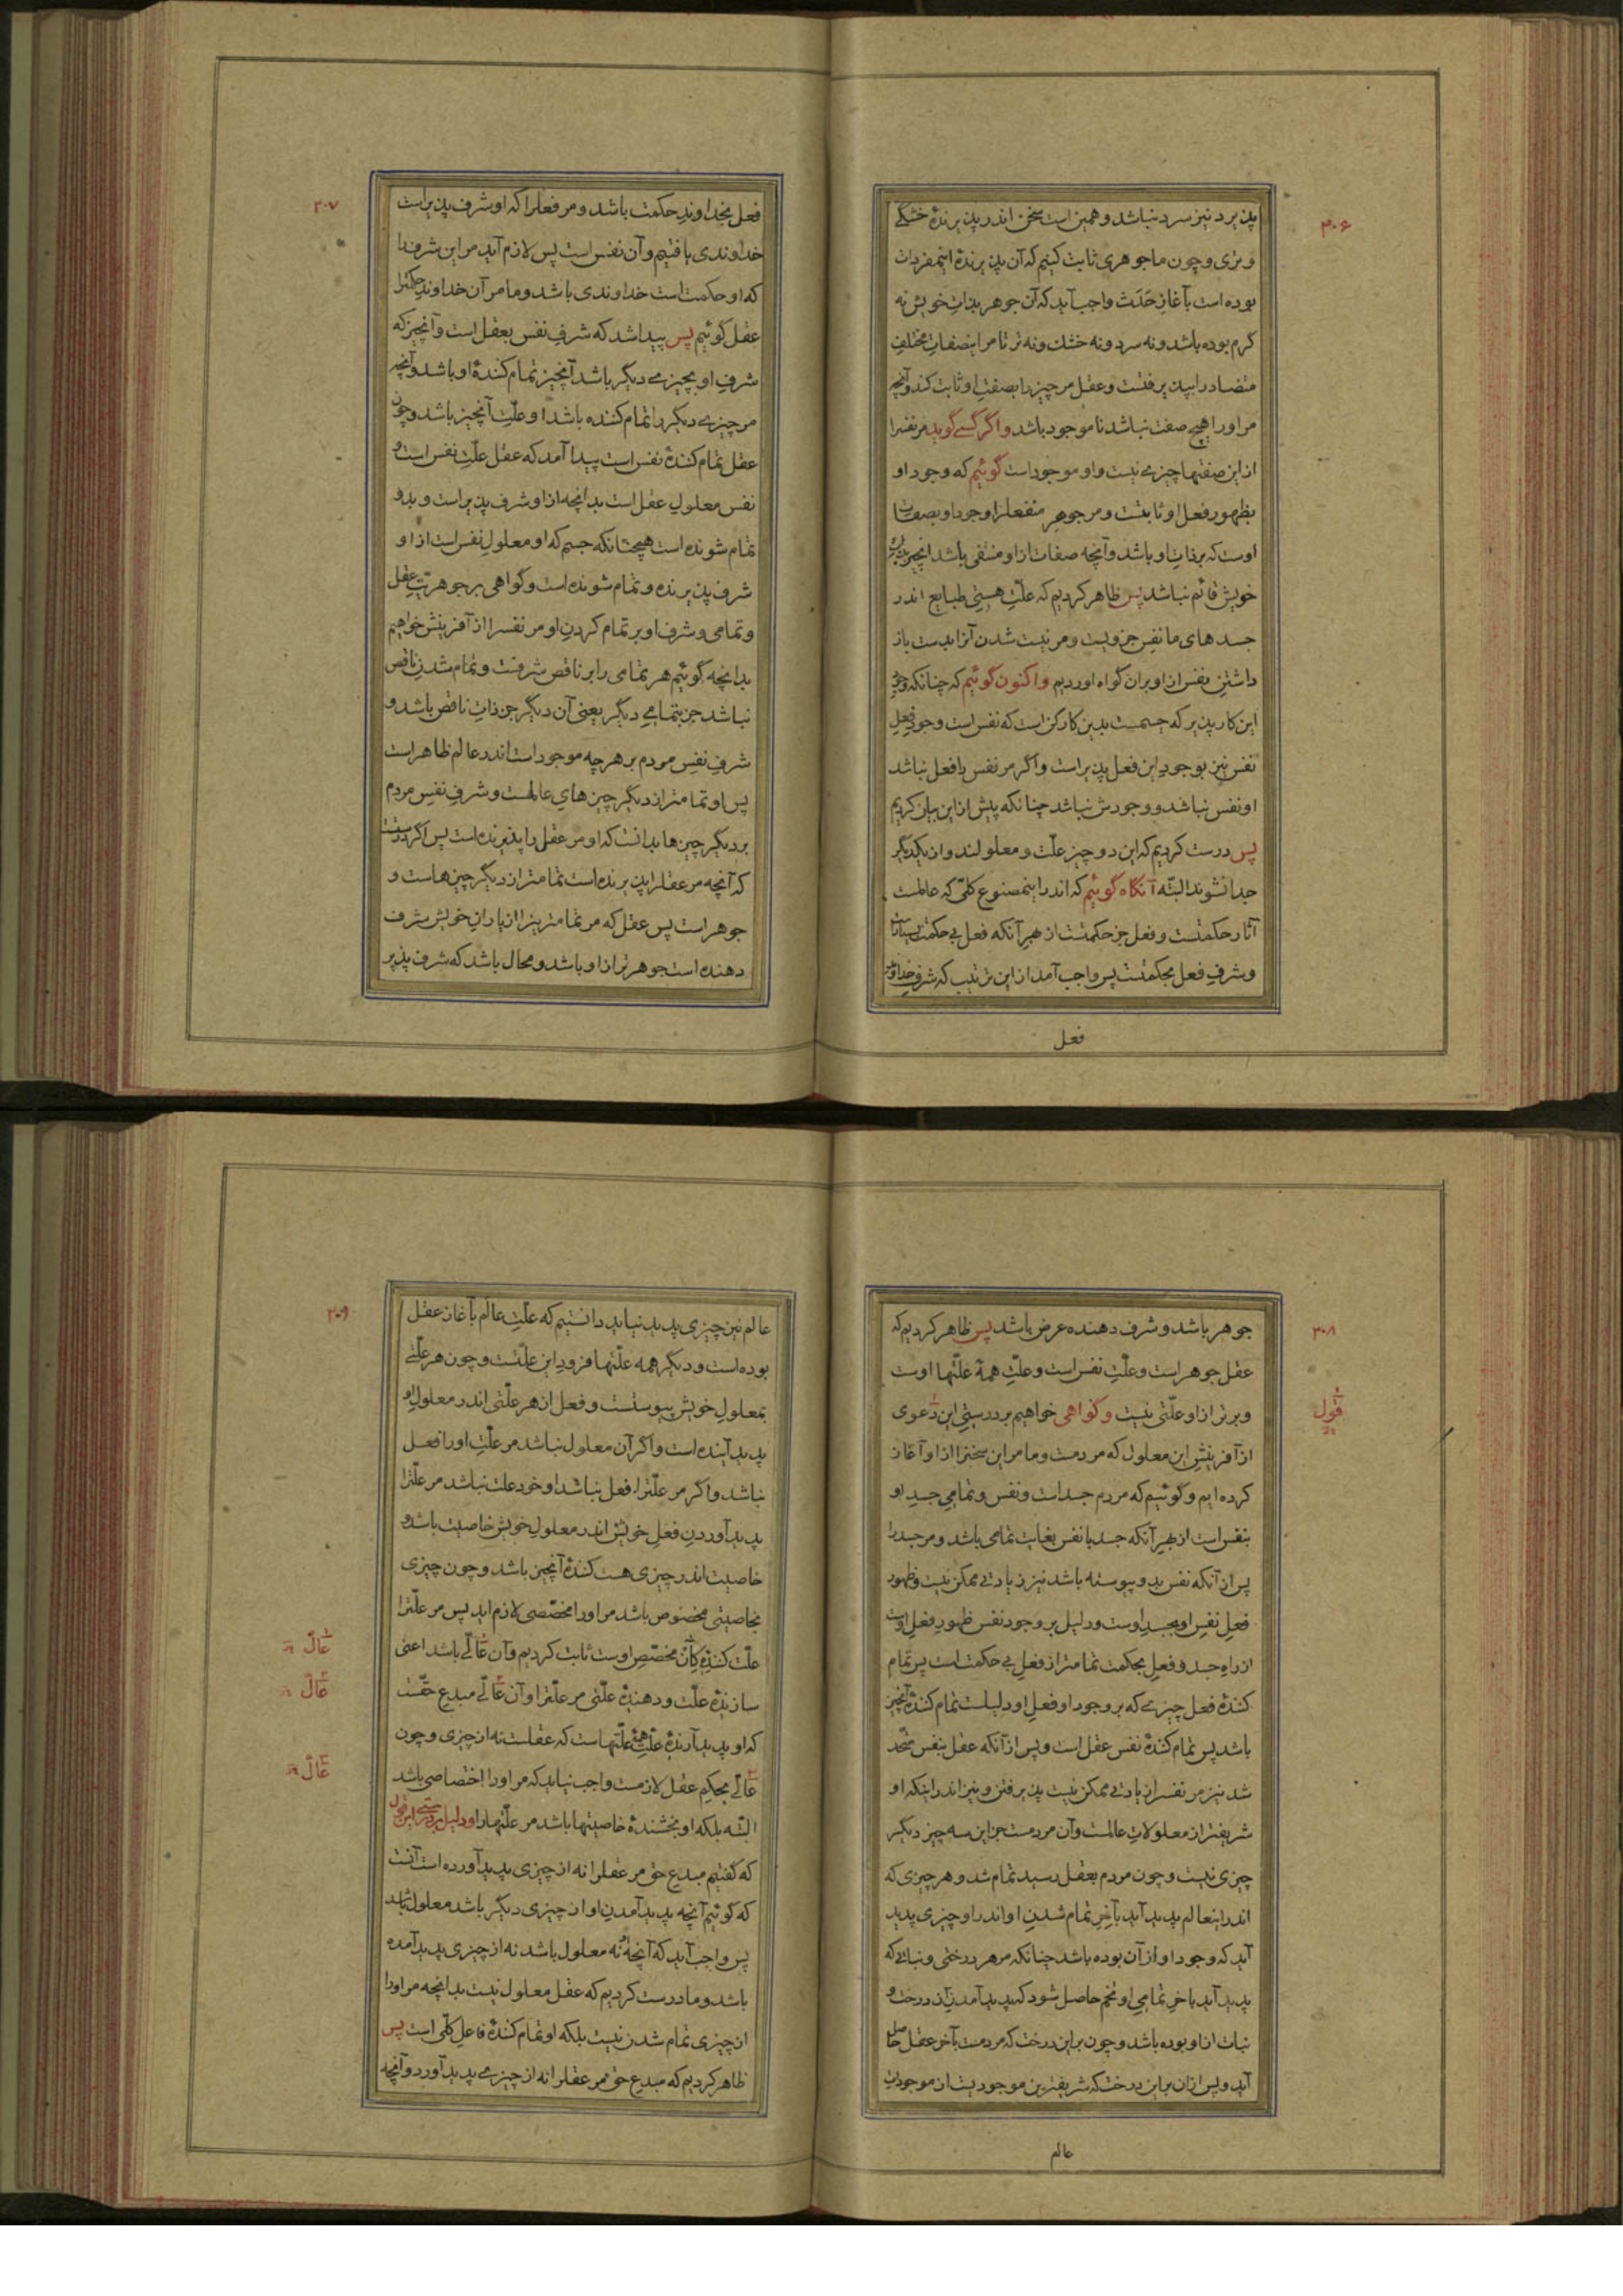 ۳۰۶
پذیرد نیز سرد نباشد و همین است سخن اندر پذیرندهٔ خشکی
و تری و چون ما جوهری ثابت کنیم که آن پذیرندهٔ اینمفردات
بوده است بآغازِ حَدَث واجب آید که آن جوهر بذاتِ خویش نه
گرم بوده باشد و نه سرد و نه خشک و نه تر تا مر اینصفاتِ مختلفِ
متضاد را بپذیرفتست و عقل مر چیز را بصفتِ او ثابت کند و آنچه
مر او را هیچ صفت نباشد ناموجود باشد و اگر کسے گوید مر نفسرا
ازین صفتها چیزے نیست و او موجود است گوئیم که وجود او
بظهور فعل او ثابتست و مر جوهرِ منفعلرا وجود او بصفات
اوست که بر ذاتِ او باشد و آنچه صفات ازو منتفی باشد آنچیز بذات
خویش قائم نباشد پس ظاهر کردیم که علّتِ هستیِ طبایع اندر
جسدهای ما نفسِ جزویست و مر نیست شدن آنرا بدست باز
داشتنِ نفس ازو بران گواه آوردیم و اکنون گوئیم که چنانکه وجودِ
این کارپذیر که جسمست بدین کارکن است که نفس است وجودِ فعلِ
نفس نیز بوجودِ این فعل پذیر است و اگر مر نفس را فعل نباشد
او نفس نباشد و وجودش نباشد چنانکه پیش ازین بیان کردیم
پس درست کردیم که این دو چیز علّت و معلولند و از یکدیگر
جدا نشوند البتّه آنگاه گوئیم که اندر اینمصنوع کلّی که عالمست
آثار حکمتست و فعل جز حکمتست از بهرِ آنکه فعل بی حکمت بسیار است
و شرفِ فعل بحکمتست پس واجب آمد ازین ترتیب که شرفِ خداوندِ
فعل
۳۰۷
فعل بخداوندِ حکمت باشد و مر فعلرا که او شرف پذیر است
خداوندی یافتیم و آن نفس است پس لازم آید مر این شرفرا
که او حکمت است خداوندی باشد و ما مر آن خداوندِ حکمترا
عقل گوئیم پس پیدا شد که شرفِ نفس بعقل است و آنچیز که
شرفِ او بچیزے دیگر باشد آنچیز تمام کنندهٔ او باشد و آنچه
مر چیزے دیگر را تمام کننده باشد او علّتِ آنچیز باشد و چون
عقل تمام کنندهٔ نفس است پیدا آمد که عقل علّتِ نفس است و
نفس معلولِ عقل است بدانچه ازو شرف پذیر است و بدو
تمام شونده است همچنانکه جسم که او معلولِ نفس است ازو
شرف پذیرنده و تمام شونده است و گواهی بر جوهریّتِ عقل
و تمامی و شرف او بر تمام کردنِ او مر نفسرا از آفرینش خواهیم
بدانچه گوئیم هر تمامی را بر ناقص شرفست و تمام شدنِ ناقص
نباشد جز بتمامے دیگر یعنی آن دیگر جز ذاتِ ناقص باشد و
شرفِ نفسِ مردم بر هر چه موجود است اندر عالم ظاهر است
پس او تمامتر از دیگر چیزهای عالمست و شرفِ نفسِ مردم
بر دیگر چیزها بدانست که او مر عقل را پذیرنده است پس اگر درست
که آنچه مر عقلرا پذیرنده است تمامتر از دیگر چیزهاست و
جوهر است پس عقل که مر تمامترینرا از یارانِ خویش شرف
دهنده است جوهرتر ازو باشد و محال باشد که شرف پذیر
۳۰۸
جوهر باشد و شرف دهنده عرض باشد پس ظاهر کردیم که
عقل جوهر است و علّتِ نفس است و علّتِ همهٔ علّتها اوست
و برتر ازو علّتی نیست و گواهی خواهیم بر درستیِ این دعوی
از آفرینشِ این معلول که مردمست و ما مر این سخنرا ازو آغاز
کرده ایم و گوئیم که مردم جسد است و نفس و تمامیِ جسدِ او
بنفس است از بهرِ آنکه جسد با نفس بغایت تمامی باشد و مر جسد را
پس از آنکه نفس بدو پیوسته باشد نیز زیادتی ممکن نیست و ظهور
فعلِ نفسِ او بجسدِ اوست و دلیل بر وجود نفس ظهورِ فعلِ اوست
از راهِ جسد و فعلِ بحکمت تمامتر از فعلِ بی حکمت است پس تمام
کنندهٔ فعل چیزے که بر وجودِ او فعلِ او دلیلست تمام کنندهٔ آنچیز
باشد پس تمام کنندهٔ نفس عقل است و پس از آنکه عقل بنفس متّحد
شد نیز مر نفسرا زیادتی ممکن نیست پذیرفتن و نیز اندر اینکه او
شریفتر از معلولاتِ عالمست و آن مردمست جز این سه چیز دیگر
چیزی نیست و چون مردم بعقل رسید تمام شد و هر چیزی که
اندر اینعالم پدید آید بآخرِ تمام شدنِ او اندر او چیزی پدید
آید که وجود او از آن بوده باشد چنانکه مر هر درختی و نباتی که
پدید آید بآخرِ تمامیِ او تخم حاصل شود که پدید آمدنِ آن درخت و
نبات ازو بوده باشد و چون بر این درخت که مردمست بآخر عقل حاصل
آید و پس ازان بر این درخت که شریفترین موجودیست از موجوداتِ
عالم
قول
۳۰۹
عالم نیز چیزی پدید نیاید دانستیم که علّتِ عالم بآغاز عقل
بوده است و دیگر همه علّتها فرودِ این علّتست و چون هر علّتے
بمعلولِ خویش پیوستست و فعل از هر علّتی اندر معلولِ او
پدید آینده است و اگر آن معلول نباشد مر علّتِ او را فعل
نباشد و اگر مر علّترا فعل نباشد او خود علّت نباشد مر علّترا
پدید آوردنِ فعلِ خویش اندر معلولِ خویش خاصیت باشد و
خاصیت اندر چیزی هست کنندهٔ آنچیز باشد و چون چیزی
بخاصیتی مخصوص باشد مر او را مخصّصی لازم آید پس مر علّترا
علّت کنندهٔ کان مخصّصِ اوست ثابت کردیم و آن عالّے باشد اعنی
سازندهٔ علّت و دهندهٔ علّتی مر علّترا و آن عالّے مبدعِ حقّست
که او پدید آرندهٔ علّتِ همهٔ علّتهاست که عقلست نه از چیزی و چون
عالّے بحکمِ عقل لازمست واجب نیاید که مر او را اختصاصی باشد
البتّه بلکه او بخشندهٔ خاصیتها باشد مر علّتها را و دلیل بر درستی این قول
که گفتیم مبدعِ حق مر عقلرا نه از چیزی پدید آورده است آنست
که گوئیم آنچه پدید آمدنِ او از چیزی دیگر باشد معلول باشد
پس واجب آید که آنچه او نه معلول باشد نه از چیزی پدید آمده
باشد و ما درست کردیم که عقل معلول نیست بدانچه مر او را
از چیزی تمام شدن نیست بلکه او تمام کنندهٔ فاعلِ کلّی است پس
ظاهر کردیم که مبدعِ حق مر عقلرا نه از چیزے پدید آورد و آنچه
عالّ
عالّ
عالّ